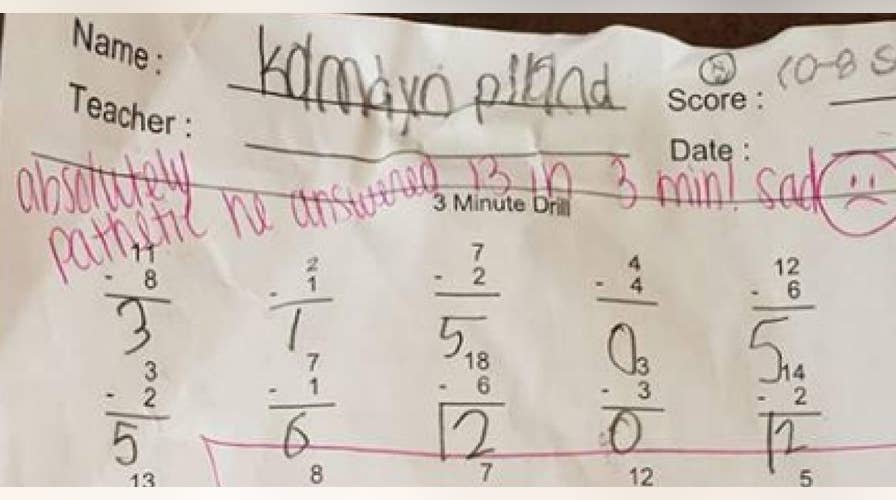 Name : Kamdyn piland
Score : 8 (0-8 S
Teacher :
Date :
absolutely
pathetic he answered 13 in 3 min! sad
3 Minute Drill
11 2 7 4 12
- 8 - 1 - 2 - 4 - 6
3 1 5 0 5
3 7 18 3 14
- 2 - 1 - 6 - 3 - 2
5 6 12 0 12
13 8 7 12 5